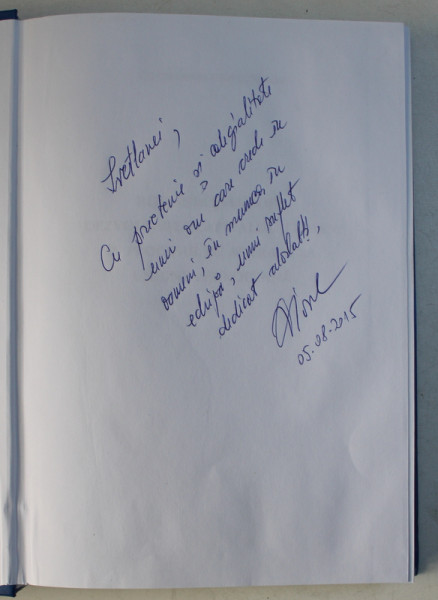 Svetlanei,
Cu prietenie și colegialitate
unui om care crede în
oameni, în muncă, în
echipă, unui suflet
dedicat
05.08.2015